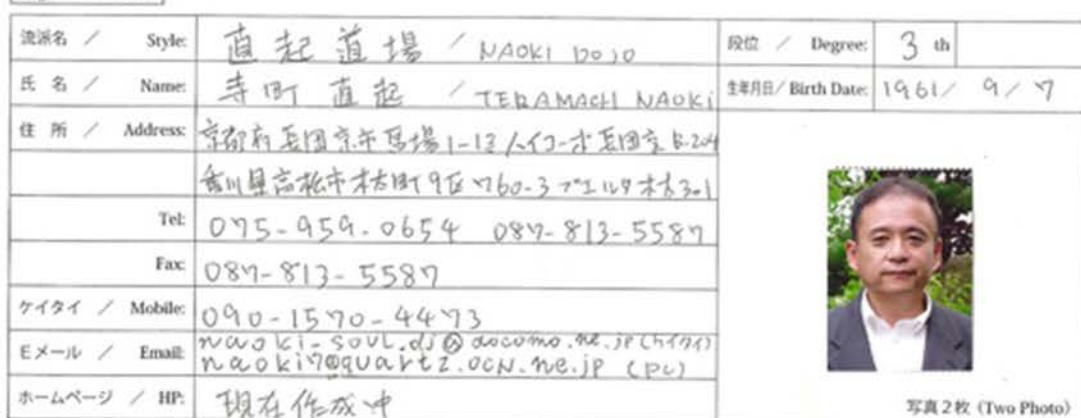 流派名 / Style: 直起道場 / NAOKI DOJO 段位 / Degree: 3 th
氏 名 / Name: 寺町 直起 / TERAMACHI NAOKi 生年月日/ Birth Date: 1961/ 9/ 7
住 所 / Address: 京都府長岡京市馬場1-13 ハイコーポ長岡京B-204
香川県高松市木太町9区760-3
Tel: 075-959-0654 087-813-5587
Fax: 087-813-5587
ケイタイ / Mobile: 090-1570-4473
Eメール / Email: naoki-soul.dj@docomo.ne.jp (ケイタイ)
naoki7@quartz.ocn.ne.jp (PC)
ホームページ / HP: 現在作成中
写真2枚 (Two Photo)